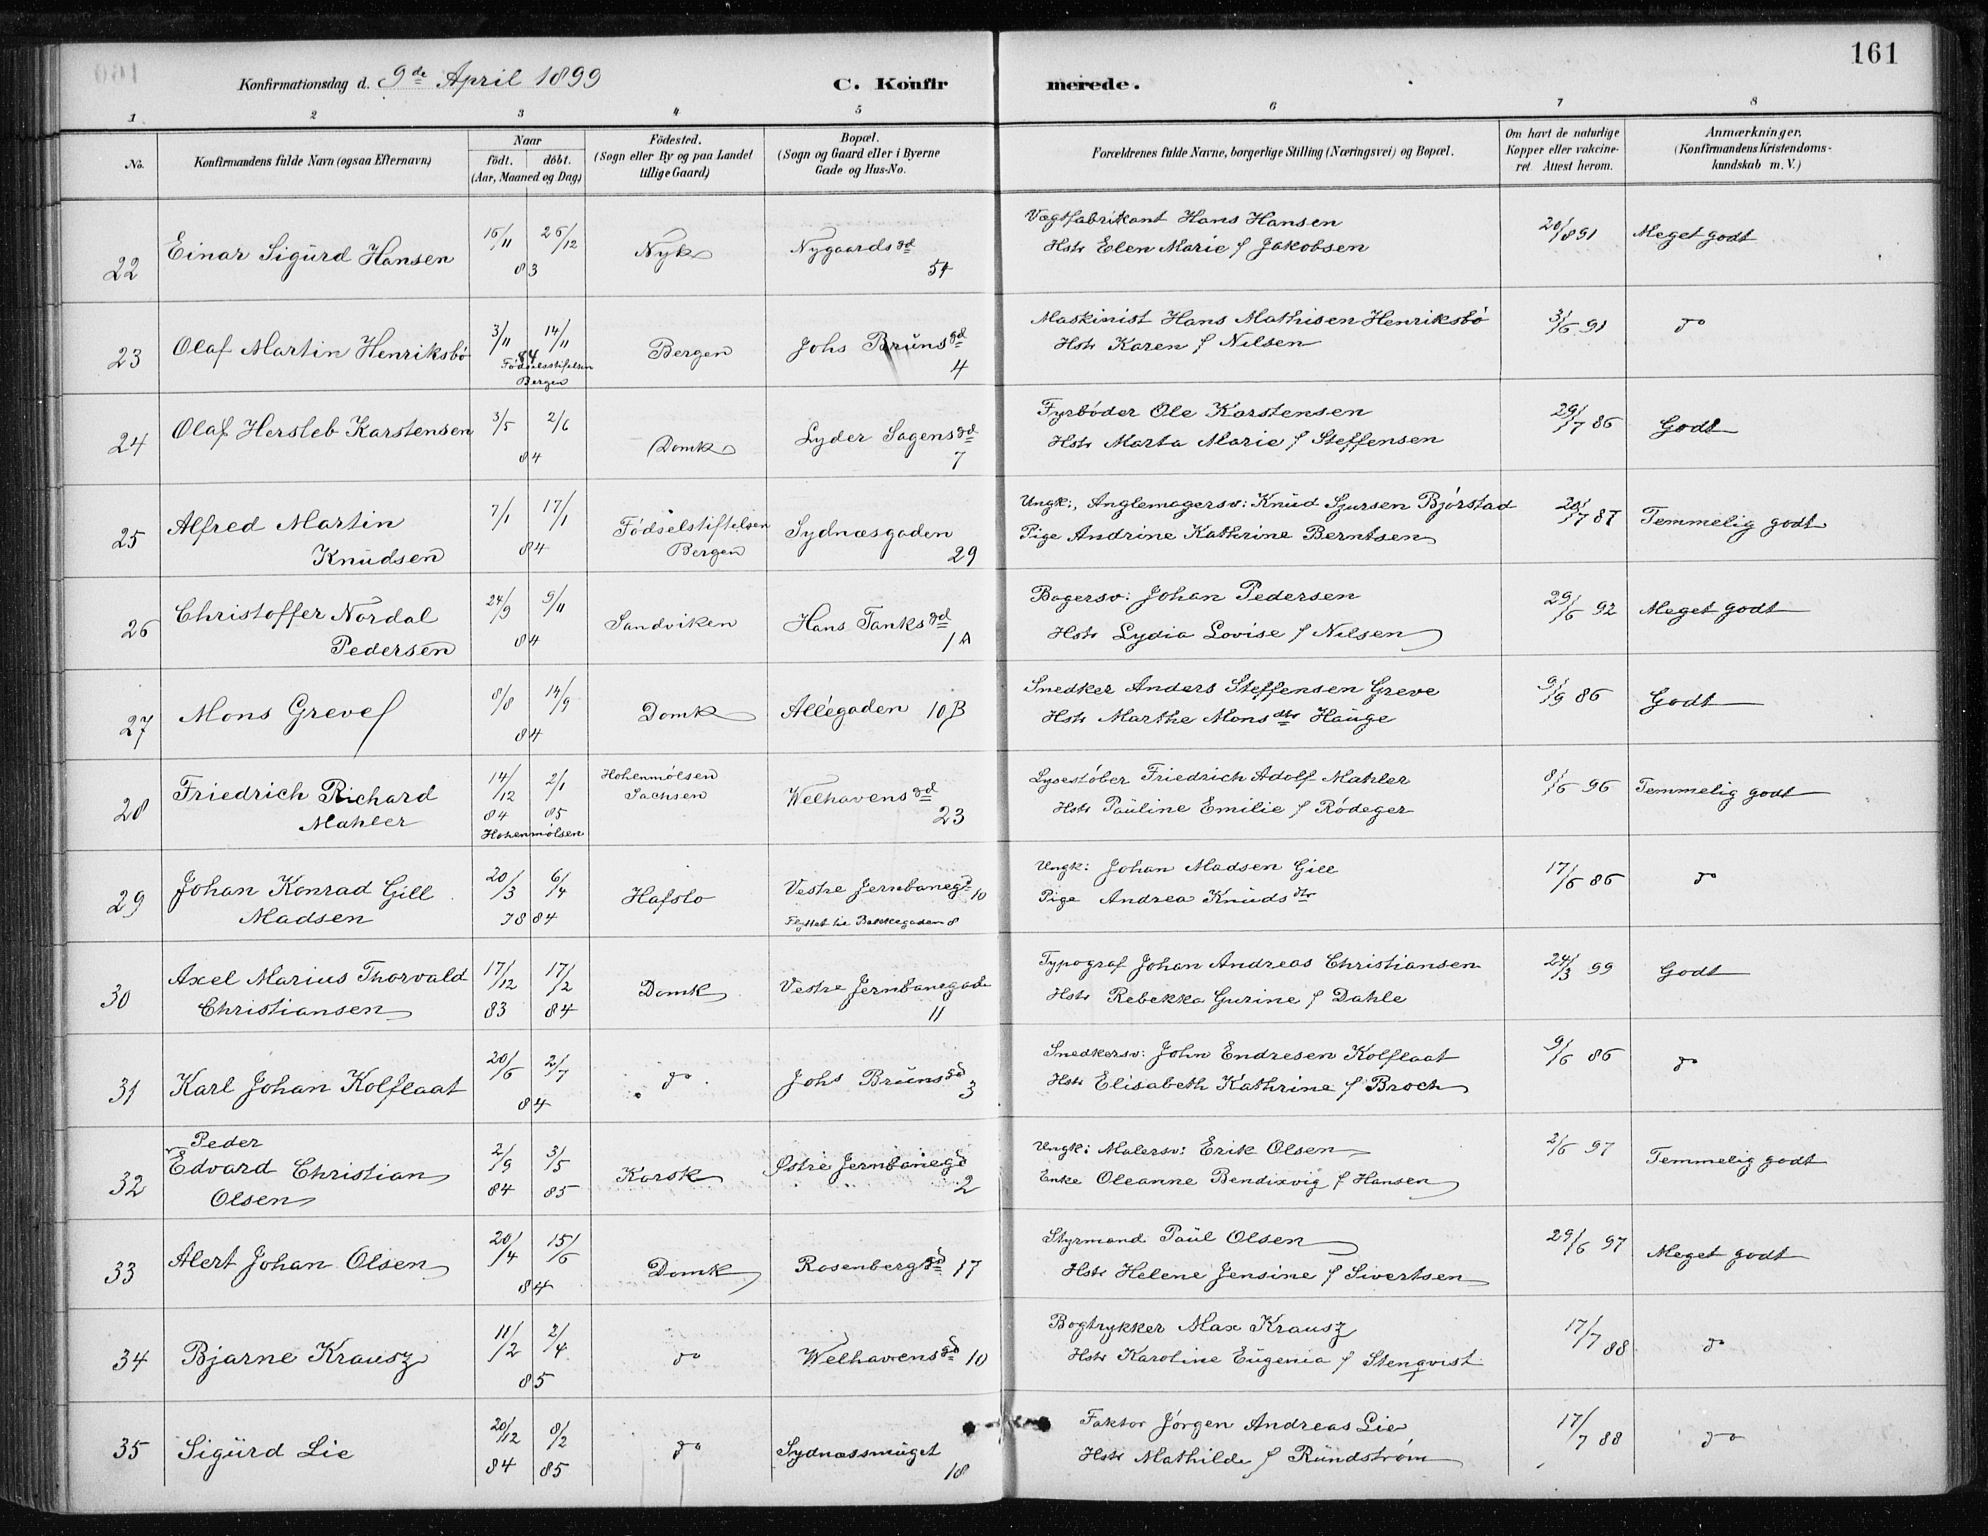 161
Konfirmationsdag d. 9de April 1899 C. Konfirmerede.
1 2 3 4 5 6 7 8
No. Konfirmandens fulde Navn (ogsaa Efternavn) Naar født. døbt. (Aar, Maaned og Dag) Fødested. (Sogn eller By og paa Landet tillige Gaard) Bopæl. (Sogn og Gaard eller i Byerne Gade og Hus-No. Forældrenes fulde Navne, borgerlige Stilling (Næringsvei) og Bopæl. Om havt de naturlige Kopper eller vakcineret Attest herom. Anmærkninger. (Konfirmandens Kristendomskundskab m. V.)
Vægtfabrikant Hans Hansen
22 Einar Sigurd Hansen 16/11 26/12 83 Nyk Nygaardsgd 54 Hstr Elen Marie f Jakobsen 20/8 91 Meget godt
Maskinist Hans Mathisen Henriksbø
23 Olaf Martin Henriksbø 3/11 14/11 84 Bergen Johs Brunsgd 4 Hstr Karen f Nilsen 3/6 91 do
Fødselsstiftelsen
Bergen
Fyrbøder Ole Karstensen
24 Olaf Hersleb Karstensen 3/5 2/6 84 Domk Lyder Sagensgd 7 Hstr Marta Marie f Steffensen 29/7 86 Godt
Ungk:, Anglemagersv: Knud Sjursen Bjørstad
25 Alfred Martin 7/1 17/1 84 Fødselstiftelsen Sydnæsgaden 29 20/7 87 Temmelig godt
Knudsen Bergen Pige Andrine Kathrine Berntsen
Bagersv: Johan Pedersen
26 Christoffer Nordal 24/9 9/11 84 Sandviken Hans Tanksgd 1A 29/6 92 Meget godt
Pedersen Hstr Lydia Lovise f Nilsen
Snedker Anders Steffensen Greve
27 Mons Greve 8/8 14/9 84 Domk Allégaden 10B Hstr Marthe Monsdtr Hauge 9/9 86 Godt
Lysestøber Friedrich Adolf Mahler
28 Friedrich Richard 14/12 84 2/1 85 Hohenmølsen Sachsen Welhavensgd 23 8/6 96 Temmelig godt
Mahler Hohenmølsen Hstr Pauline Emilie f Rødeger
Ungk: Johan Madsen Gill
29 Johan Konrad Gill 20/3 6/4 84 Hafslo Vestre Jernbanegd 10 17/6 86 do
Madsen Flyttet til Bakkegaden 8 Pige Andrea Knudsdtr
Typograf Johan Andreas Christiansen
30 Axel Marius Thorvald 17/12 83 17/2 84 Domk Vestre Jernbanegade 11 24/3 99 Godt
Christiansen Hstr Rebekka Gurine f Dahle
Snedkersv: John Endresen Kolflaat
31 Karl Johan Kolflaat 20/6 2/7 84 do Johs Brunsgd 3 Hstr Elisabeth Kathrine f Broch 9/6 86 do
Peder
32 Edvard Christian 2/9 84 3/5 85 Korsk Østre Jernbanegd 2 Ungk: Malersv: Erik Olsen 2/6 97 Temmelig godt
Olsen Enke Oleanne Bendixvig f Hansen
Styrmand Paul Olsen
33 Alert Johan Olsen 20/4 15/6 84 Domk Rosenberggd 17 Hstr Helene Jensine f Sivertsen 29/6 97 Meget godt
Bogtrykker Max Krausz
34 Bjarne Krausz 11/2 2/4 85 do Welhavensgd 10 Hstr Karoline Eugenia f Stenqvist 17/7 88 do
Faktor Jørgen Andreas Lie
35 Sigurd Lie 20/12 84 8/2 85 do Sydnæssmuget 18 Hstr Mathilde f Rundstrøm 17/7 88 do